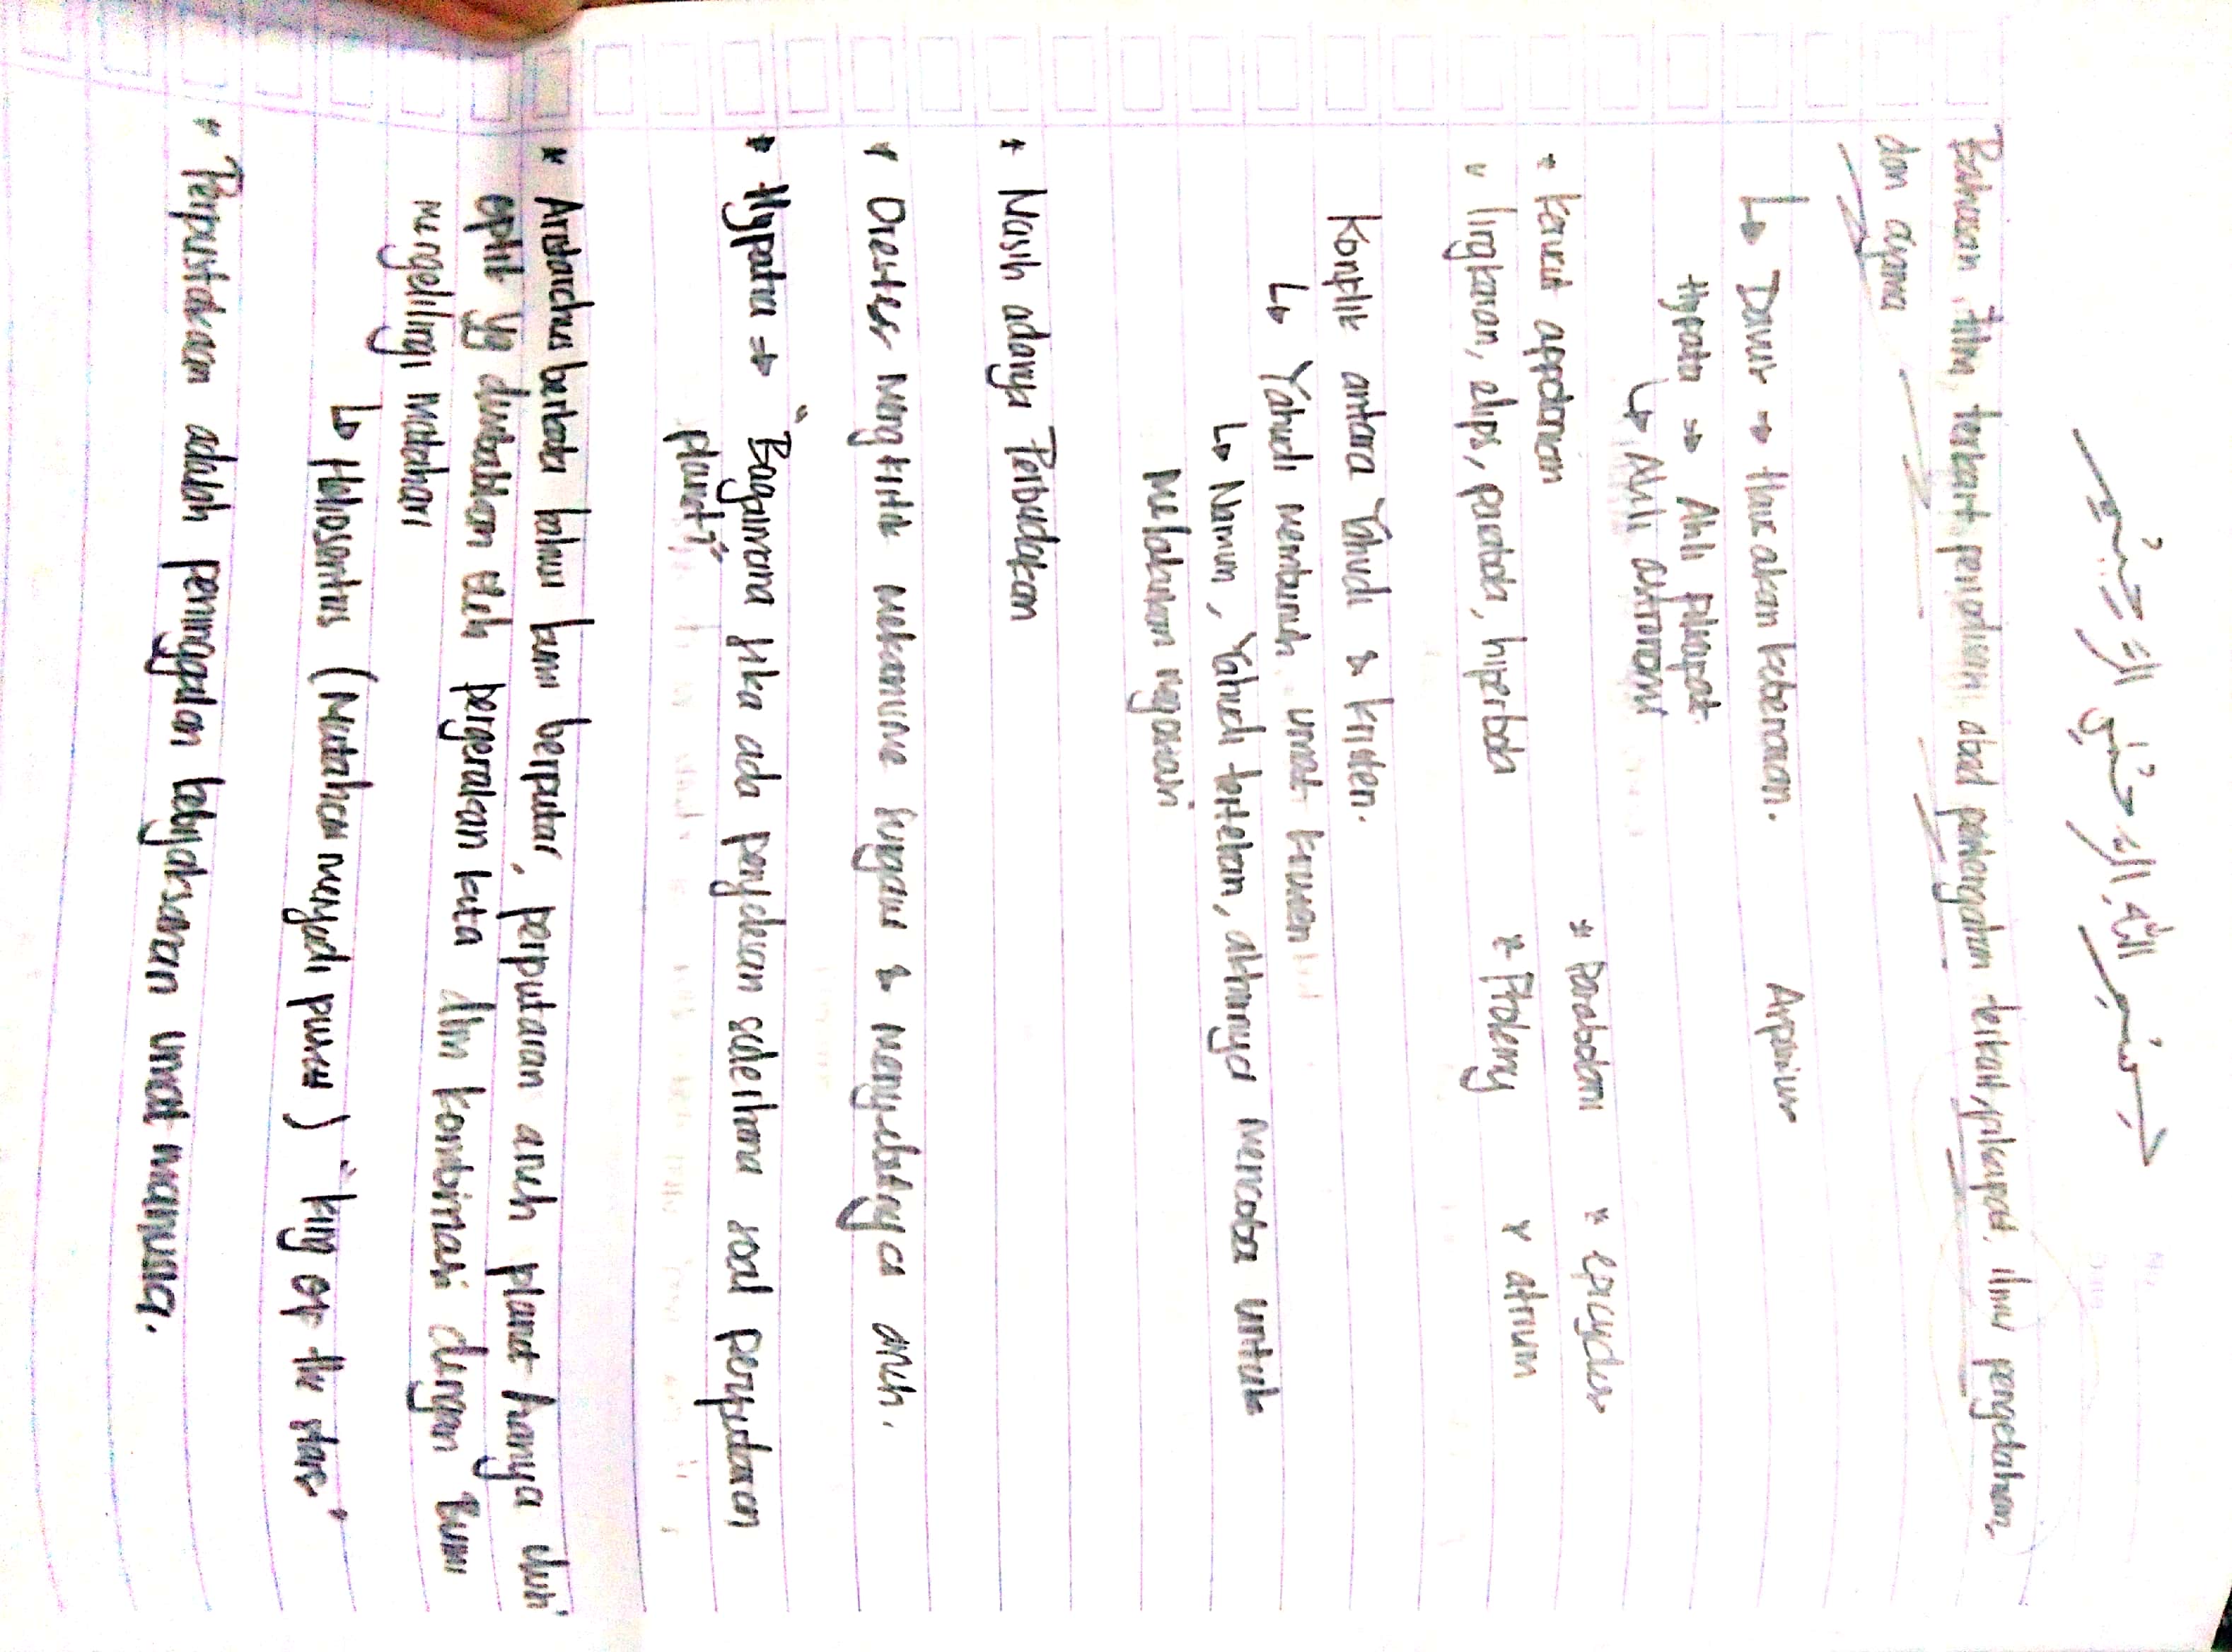 بِسْمِ اللّٰهِ الرَّحْمٰنِ الرَّحِيْمِ
Bahasan film terkait peradaban abad pertengahan terkait filsapat, ilmu pengetahuan,
dan agama
↳ Davus → Haus akan kebenaran. Arpenius
Hypatia ⇒ Ahli filsapat
↳ Ahli astronomi
* Kerucut appolonian * Parabolani * epicycles
* lingkaran, elips, parabola, hiperbola * Ptolemy * atrium
Konflik antara Yahudi & Kristen.
↳ Yahudi membunuh umat Kristen
↳ Namun, Yahudi tertekan, akhirnya mencoba untuk
melakukan negosiasi
* Masih adanya Perbudakan
* Orestes mengkritik mekanisme & menyebutnya aneh.
* Hypatia ⇒ "Bagaimana jika ada penjelasan sederhana soal perjalanan
planet?"
* Aristarchus berkata bahwa bumi berputar, perputaran aneh planet hanya ilusi
optik yg disebabkan oleh pergerakan kita dlm kombinasi dengan Bumi
mengelilingi matahari
↳ Heliosentris (Matahari menjadi pusat) "king of the stars"
* Perpustakaan adalah peninggalan kebijaksanaan umat manusia.